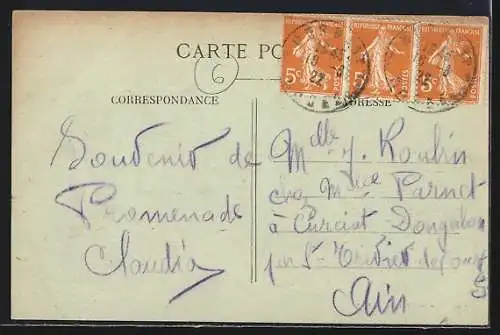 CARTE PO
6
RÉPUBLIQUE FRANÇAISE
RÉPUBLIQUE FRANÇAISE
RÉPUBLIQUE FRANÇAISE
5c POSTES
5c POSTES
5c POSTES
CORRESPONDANCE
ADRESSE
Souvenir de
Promenade
Claudia
Melle J. Roulin
chez Mme Parnet
à Curciat Dongalon
par St Trivier de Courtes
Ain